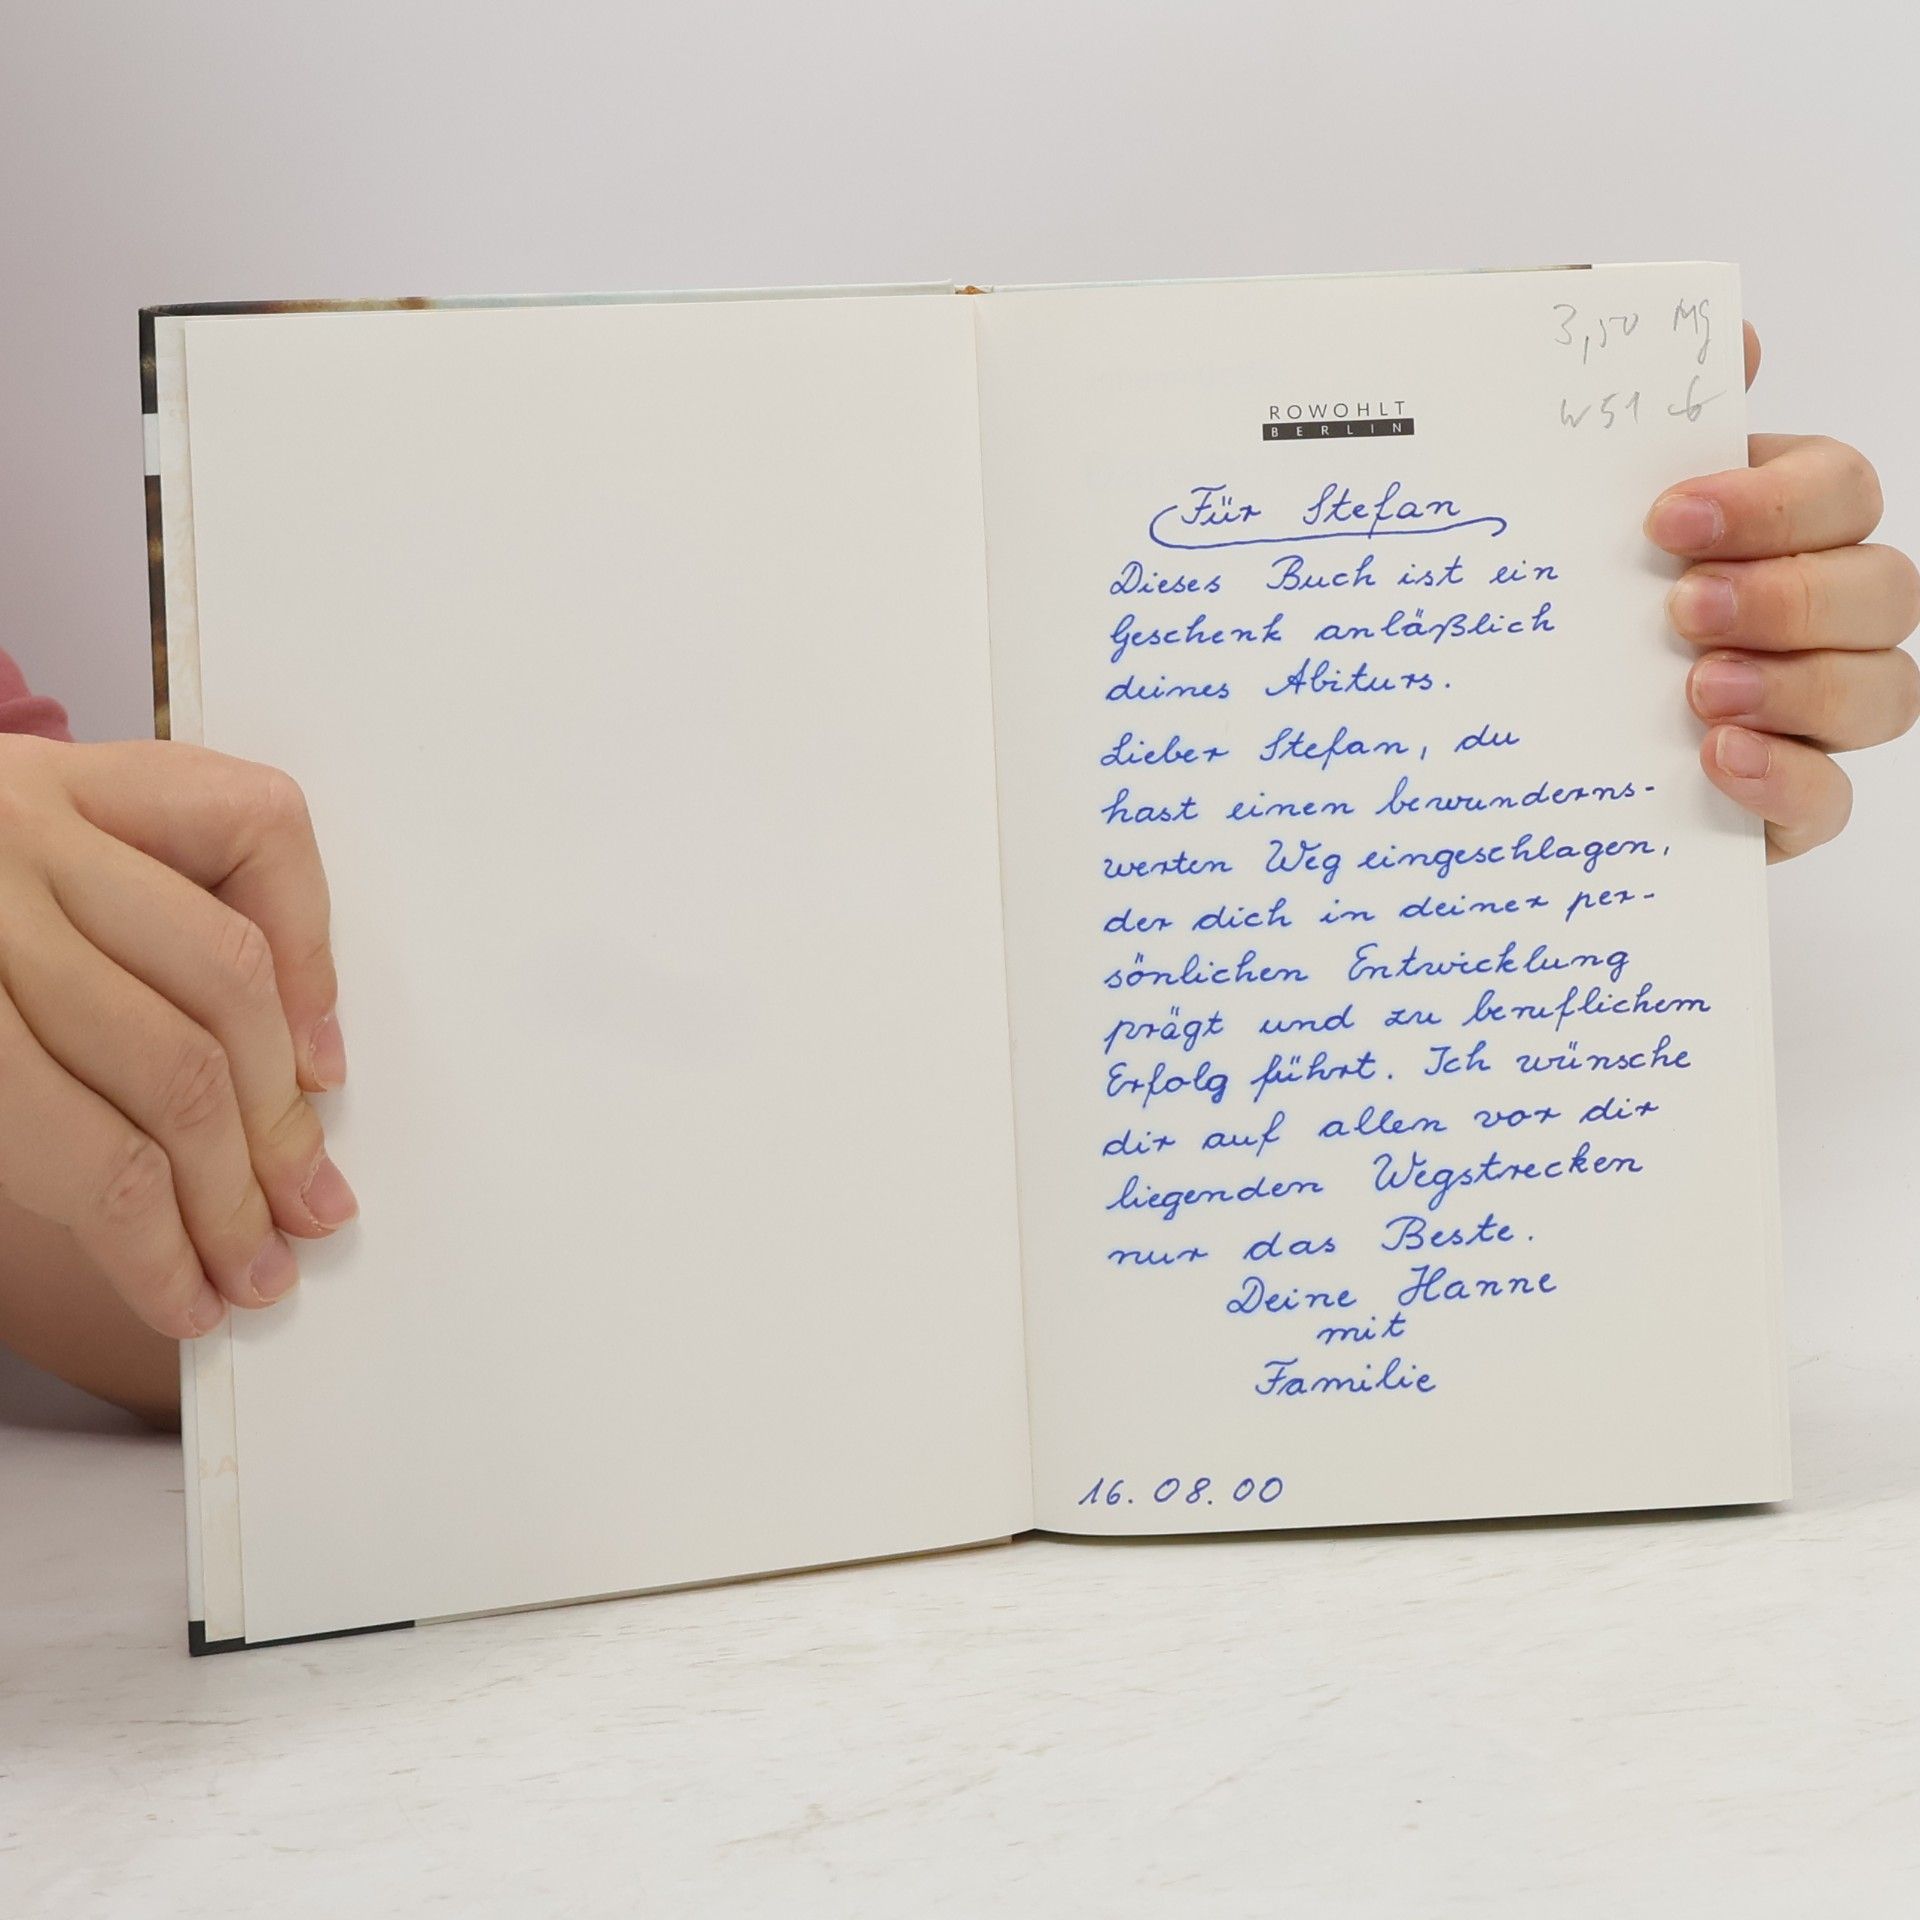 3,50 Mg
W51
ROWOHLT
BERLIN
Für Stefan
Dieses Buch ist ein
Geschenk anläßlich
deines Abiturs.
Lieber Stefan, du
hast einen bewunderns-
werten Weg eingeschlagen,
der dich in deiner per-
sönlichen Entwicklung
prägt und zu beruflichem
Erfolg führt. Ich wünsche
dir auf allen vor dir
liegenden Wegstrecken
nur das Beste.
Deine Hanne
mit
Familie
16.08.00